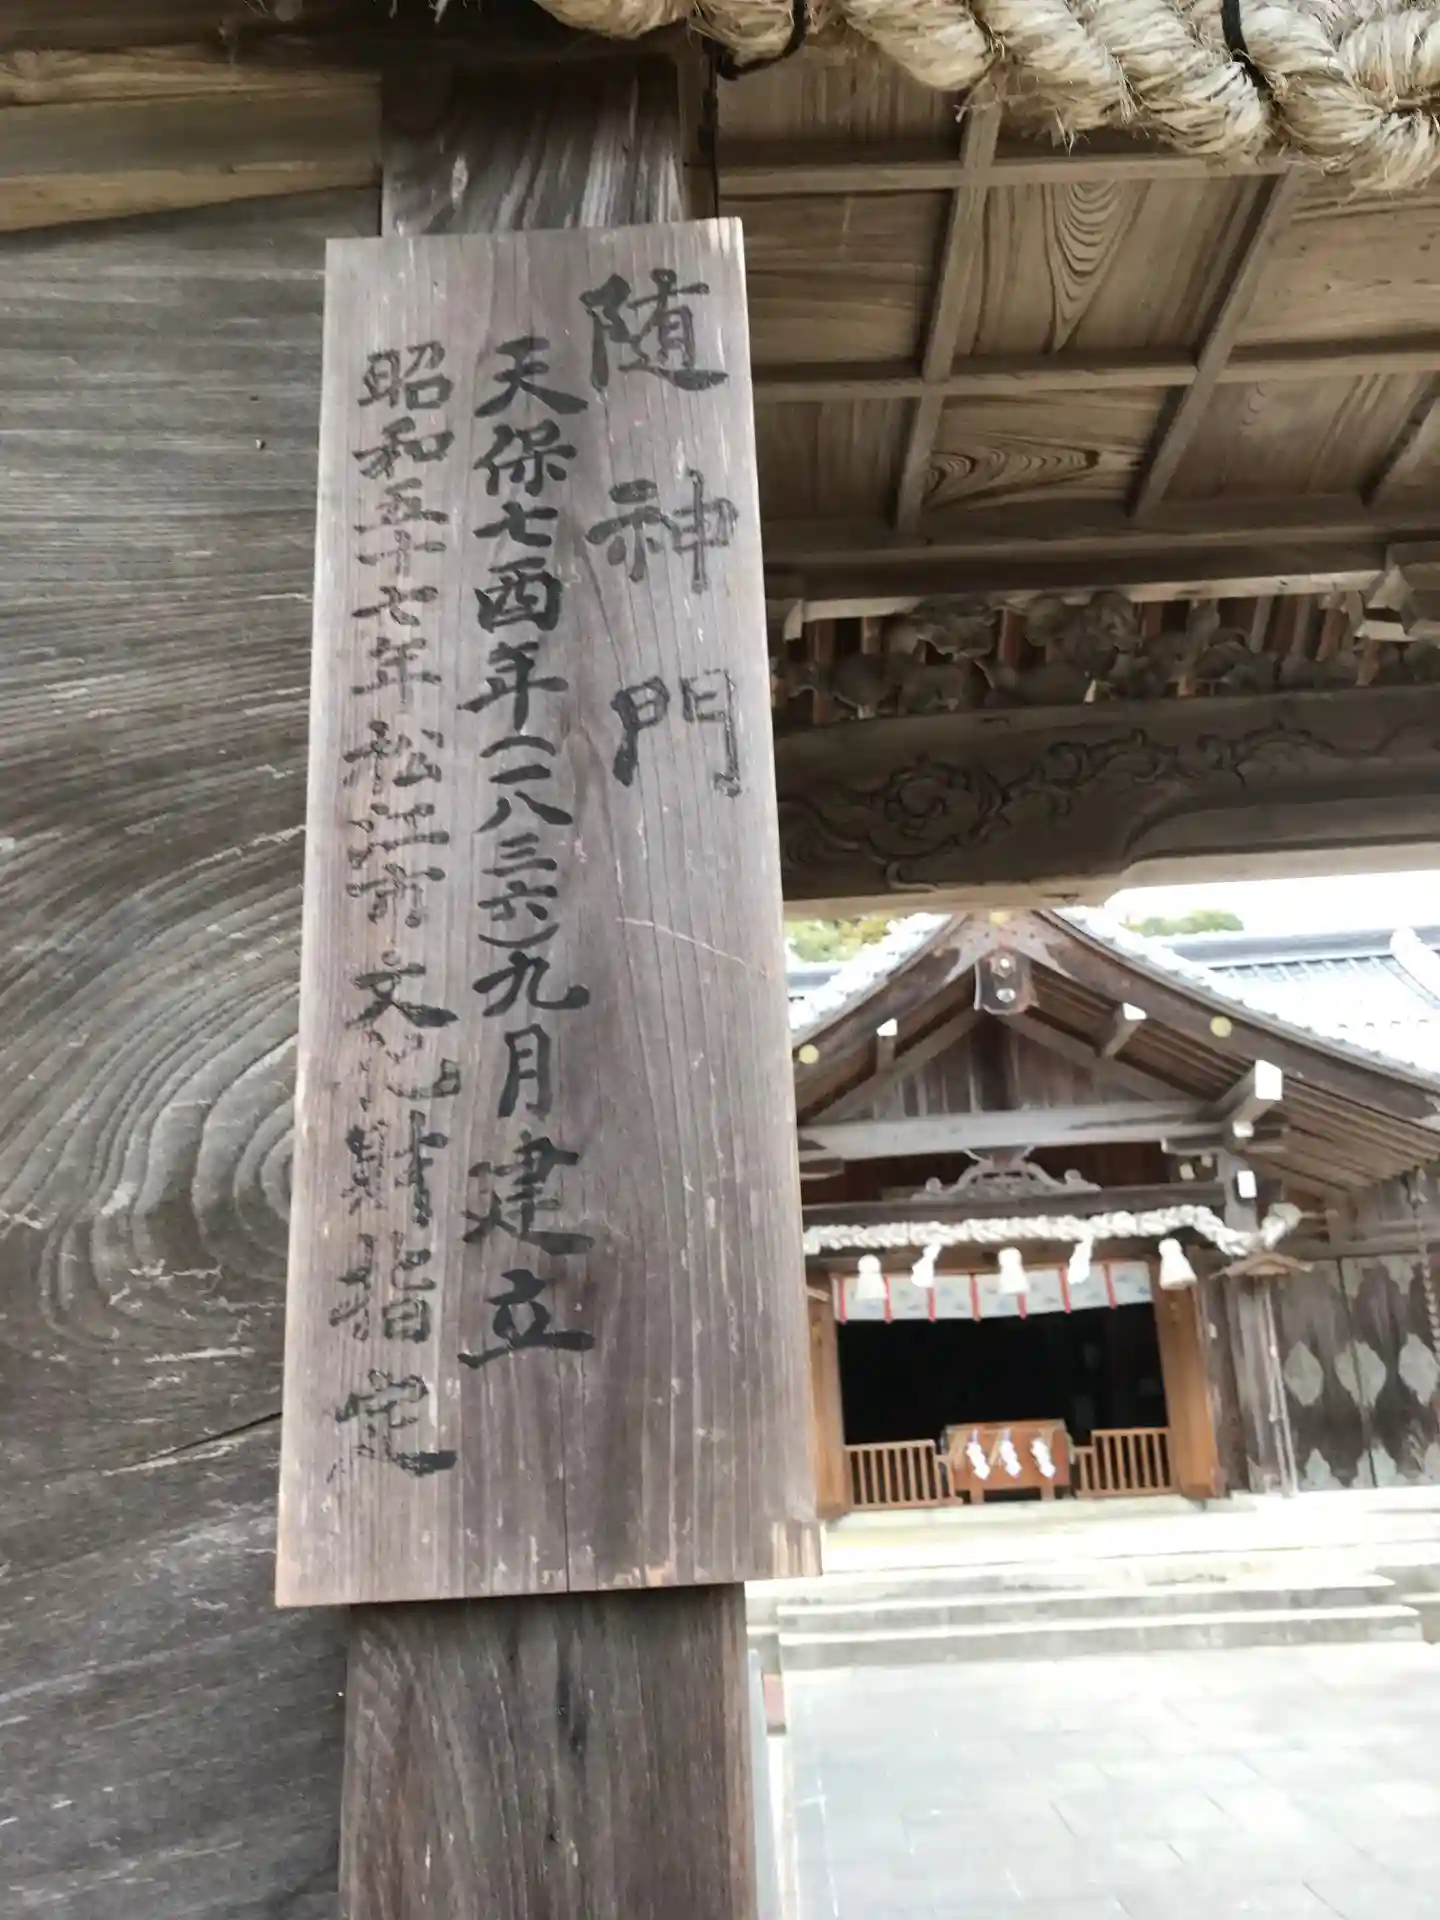 随神門
天保七酉年（一八三六）九月建立
昭和五十七年 松江市 文化財指定